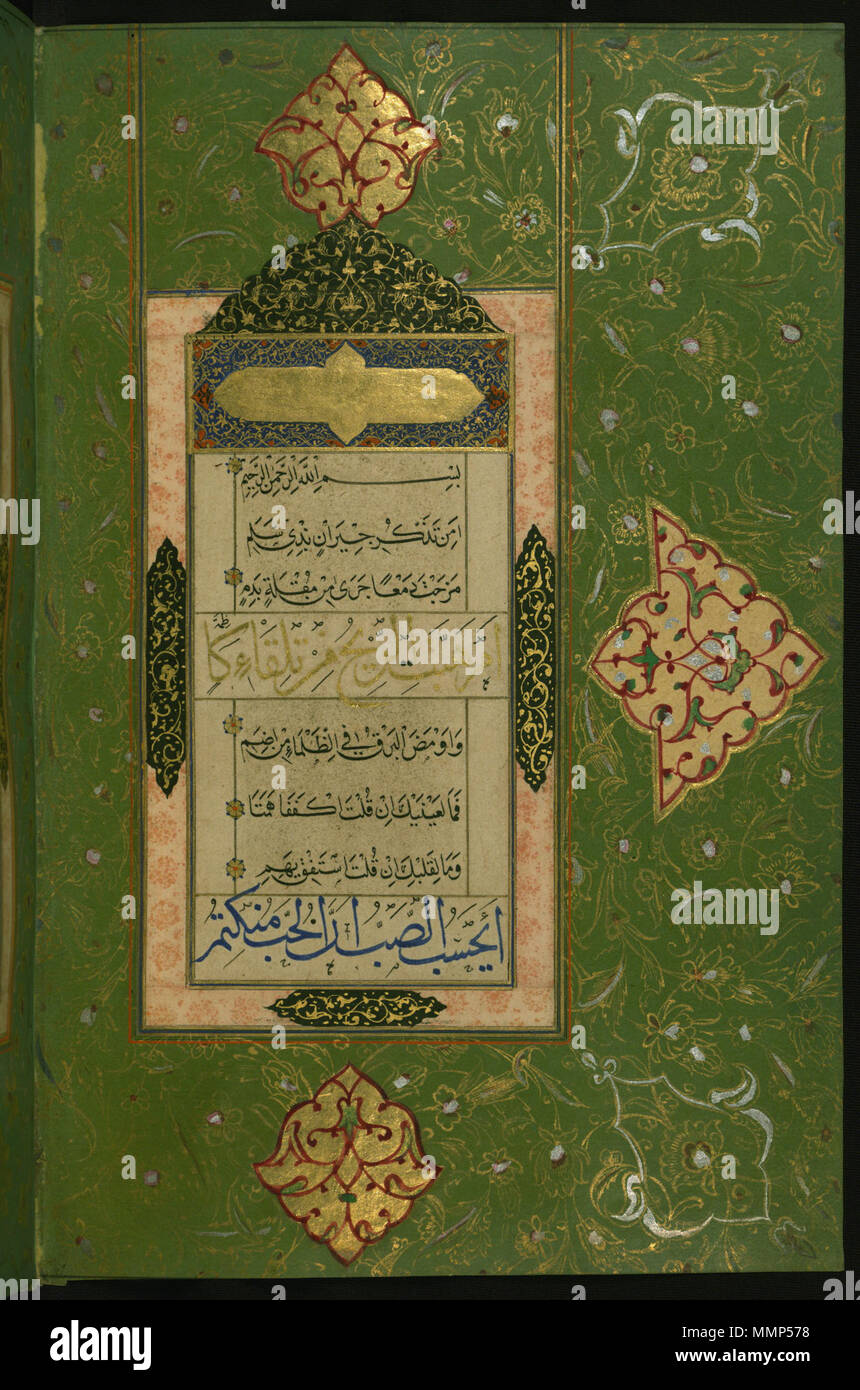 بسم الله الرحمن الرحيم
امن تذكر جيران بذي سلم
مزجت دمعا جرى من مقلة بدم
ام هبت الريح من تلقاء كاظمة
واومض البرق في الظلماء من اضم
فما لعينيك ان قلت اكففا همتا
وما لقلبك ان قلت استفق يهم
ايحسب الصب ان الحب منكتم
alamy
alamy
alamy
Image ID: MMP578
www.alamy.com